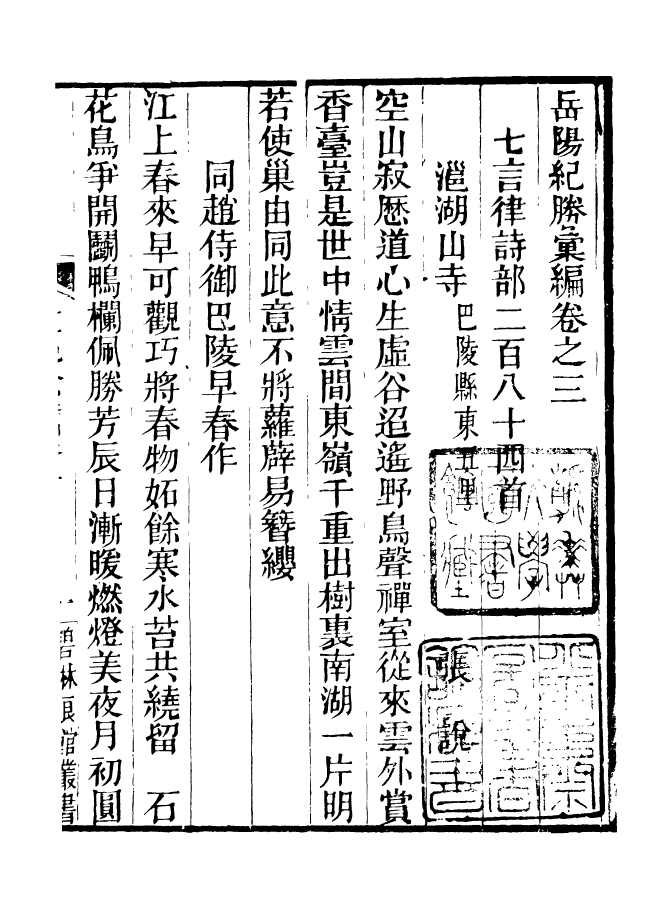 岳陽紀勝彙編卷之三
七言律詩部二百八十四首
㴩湖山寺 巴陵縣東五里 張說
空山寂歷道心生虛谷迢遙野鳥聲禪室從來雲外賞
香臺豈是世中情雲間東嶺千重出樹裏南湖一片明
若使巢由同此意不將蘿薜易簪纓
同趙侍御巴陵早春作
江上春來早可觀巧將春物妬餘寒水苔共繞留 石
花鳥爭開鬭鴨欄佩勝芳辰日漸暖燃燈美夜月初圓
一
碧林琅館叢書